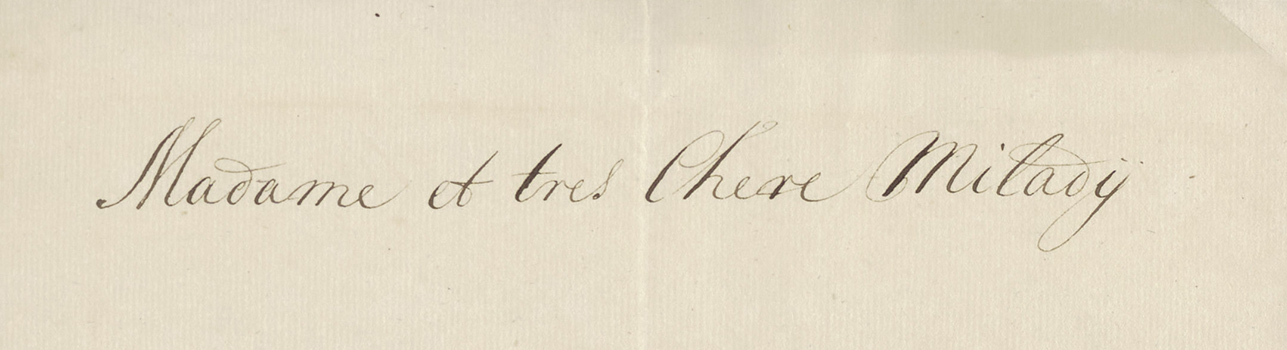 Madame et tres Chere Miladÿ